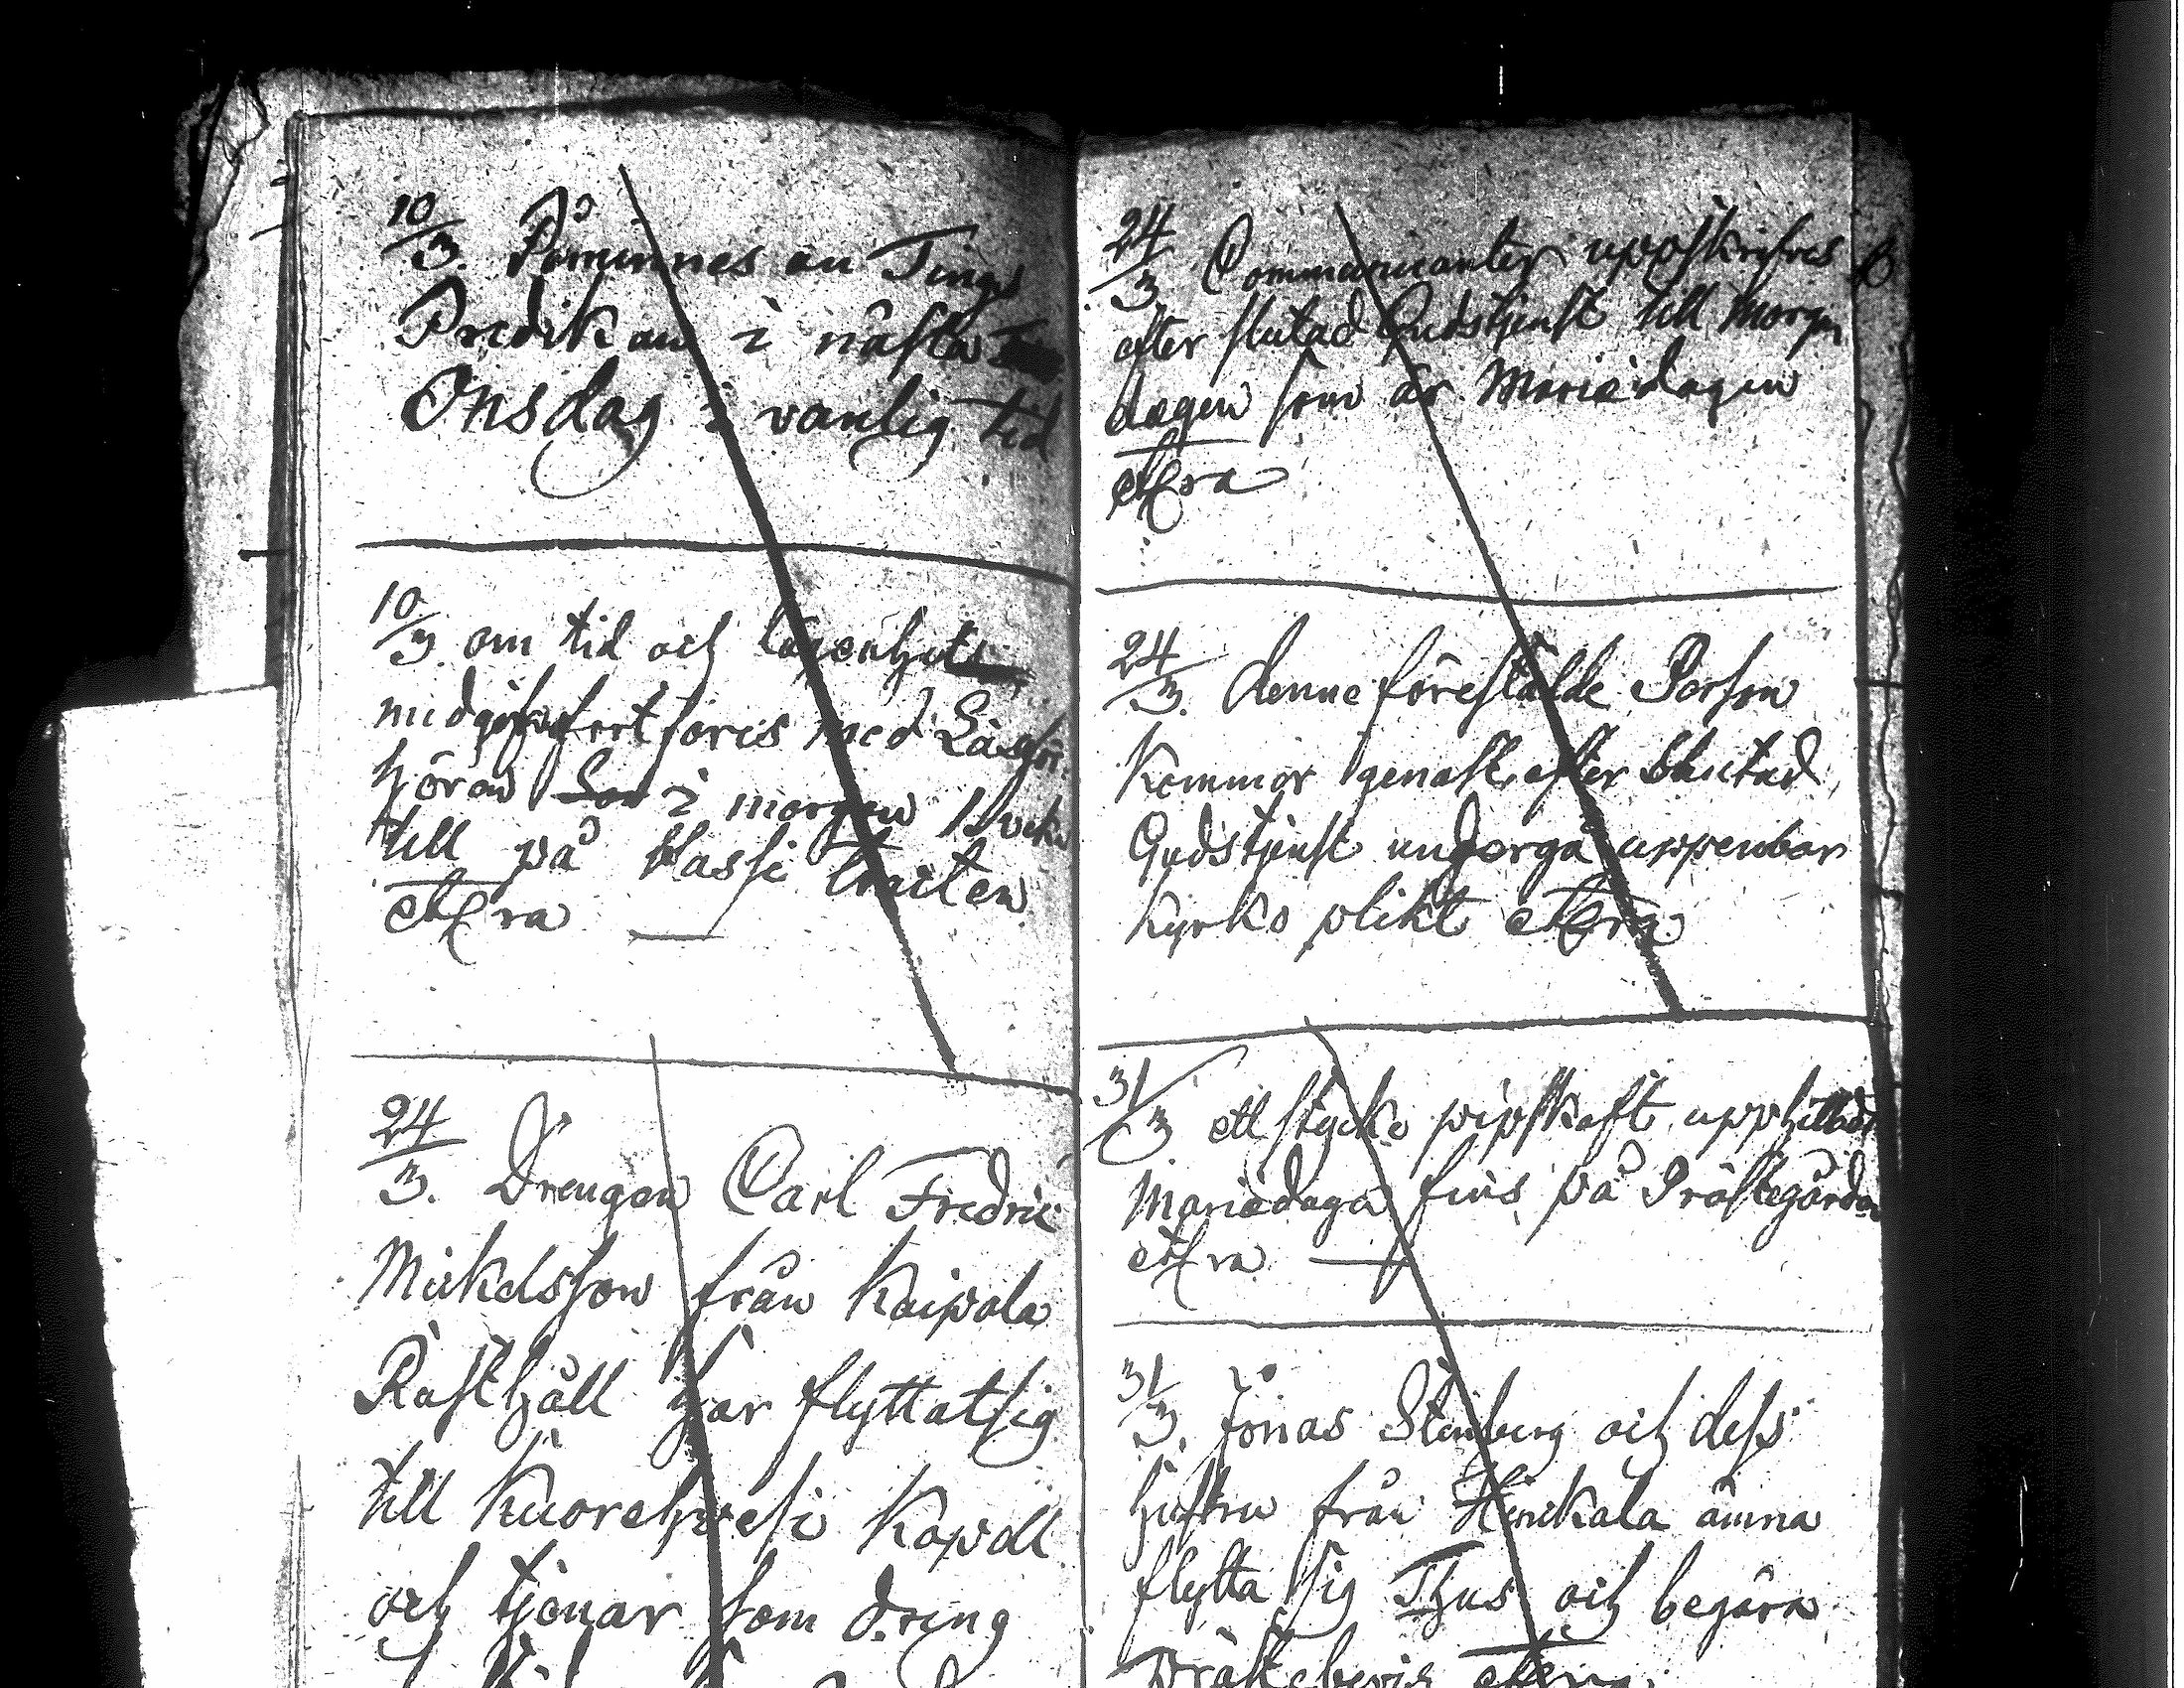 10/3. Påminnes en Tings
Predikan i nästa
Onsdag i vanlig tid
10/3. om tid och lägenhet
fortfares med Läseför
hören i morgon
till på Tassi trakten
etc ra
24/3. Drengen Carl Fredric
Mickelsson från Kaipola
Rusthåll har flyttat sig
till Kuorehvesi Kapell
och tjenar som dreng
24/3. Communicanter uppskrifves
efter slutad Gudstjenst till morgon
dagen som är Mariædagen
etc ra
24/3. denne förestälde Person
kommer genast efter slutad
Gudstjenst undergå uppenbar
kyrko plikt etc ra
31/3 ett stycke pipskaft upphittad
Mariædagen fins på Prästegården
etc ra
31/3. Jonas Stenberg och dess
hustru från Hinkala ämna
flytta sig och begära
Prästebevis etc ra